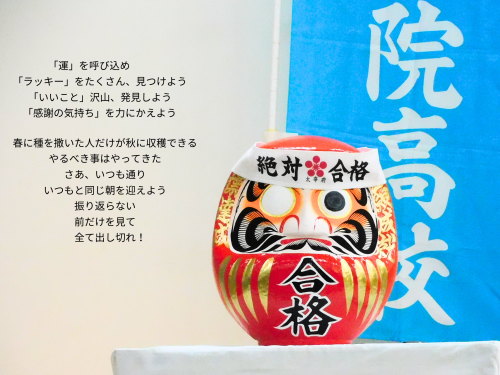 「運」を呼び込め
「ラッキー」をたくさん、見つけよう
「いいこと」沢山、発見しよう
「感謝の気持ち」を力にかえよう
春に種を撒いた人だけが秋に収穫できる
やるべき事はやってきた
さあ、いつも通り
いつもと同じ朝を迎えよう
振り返らない
前だけを見て
全て出し切れ！
院高校
絶対合格
太宰府
合格